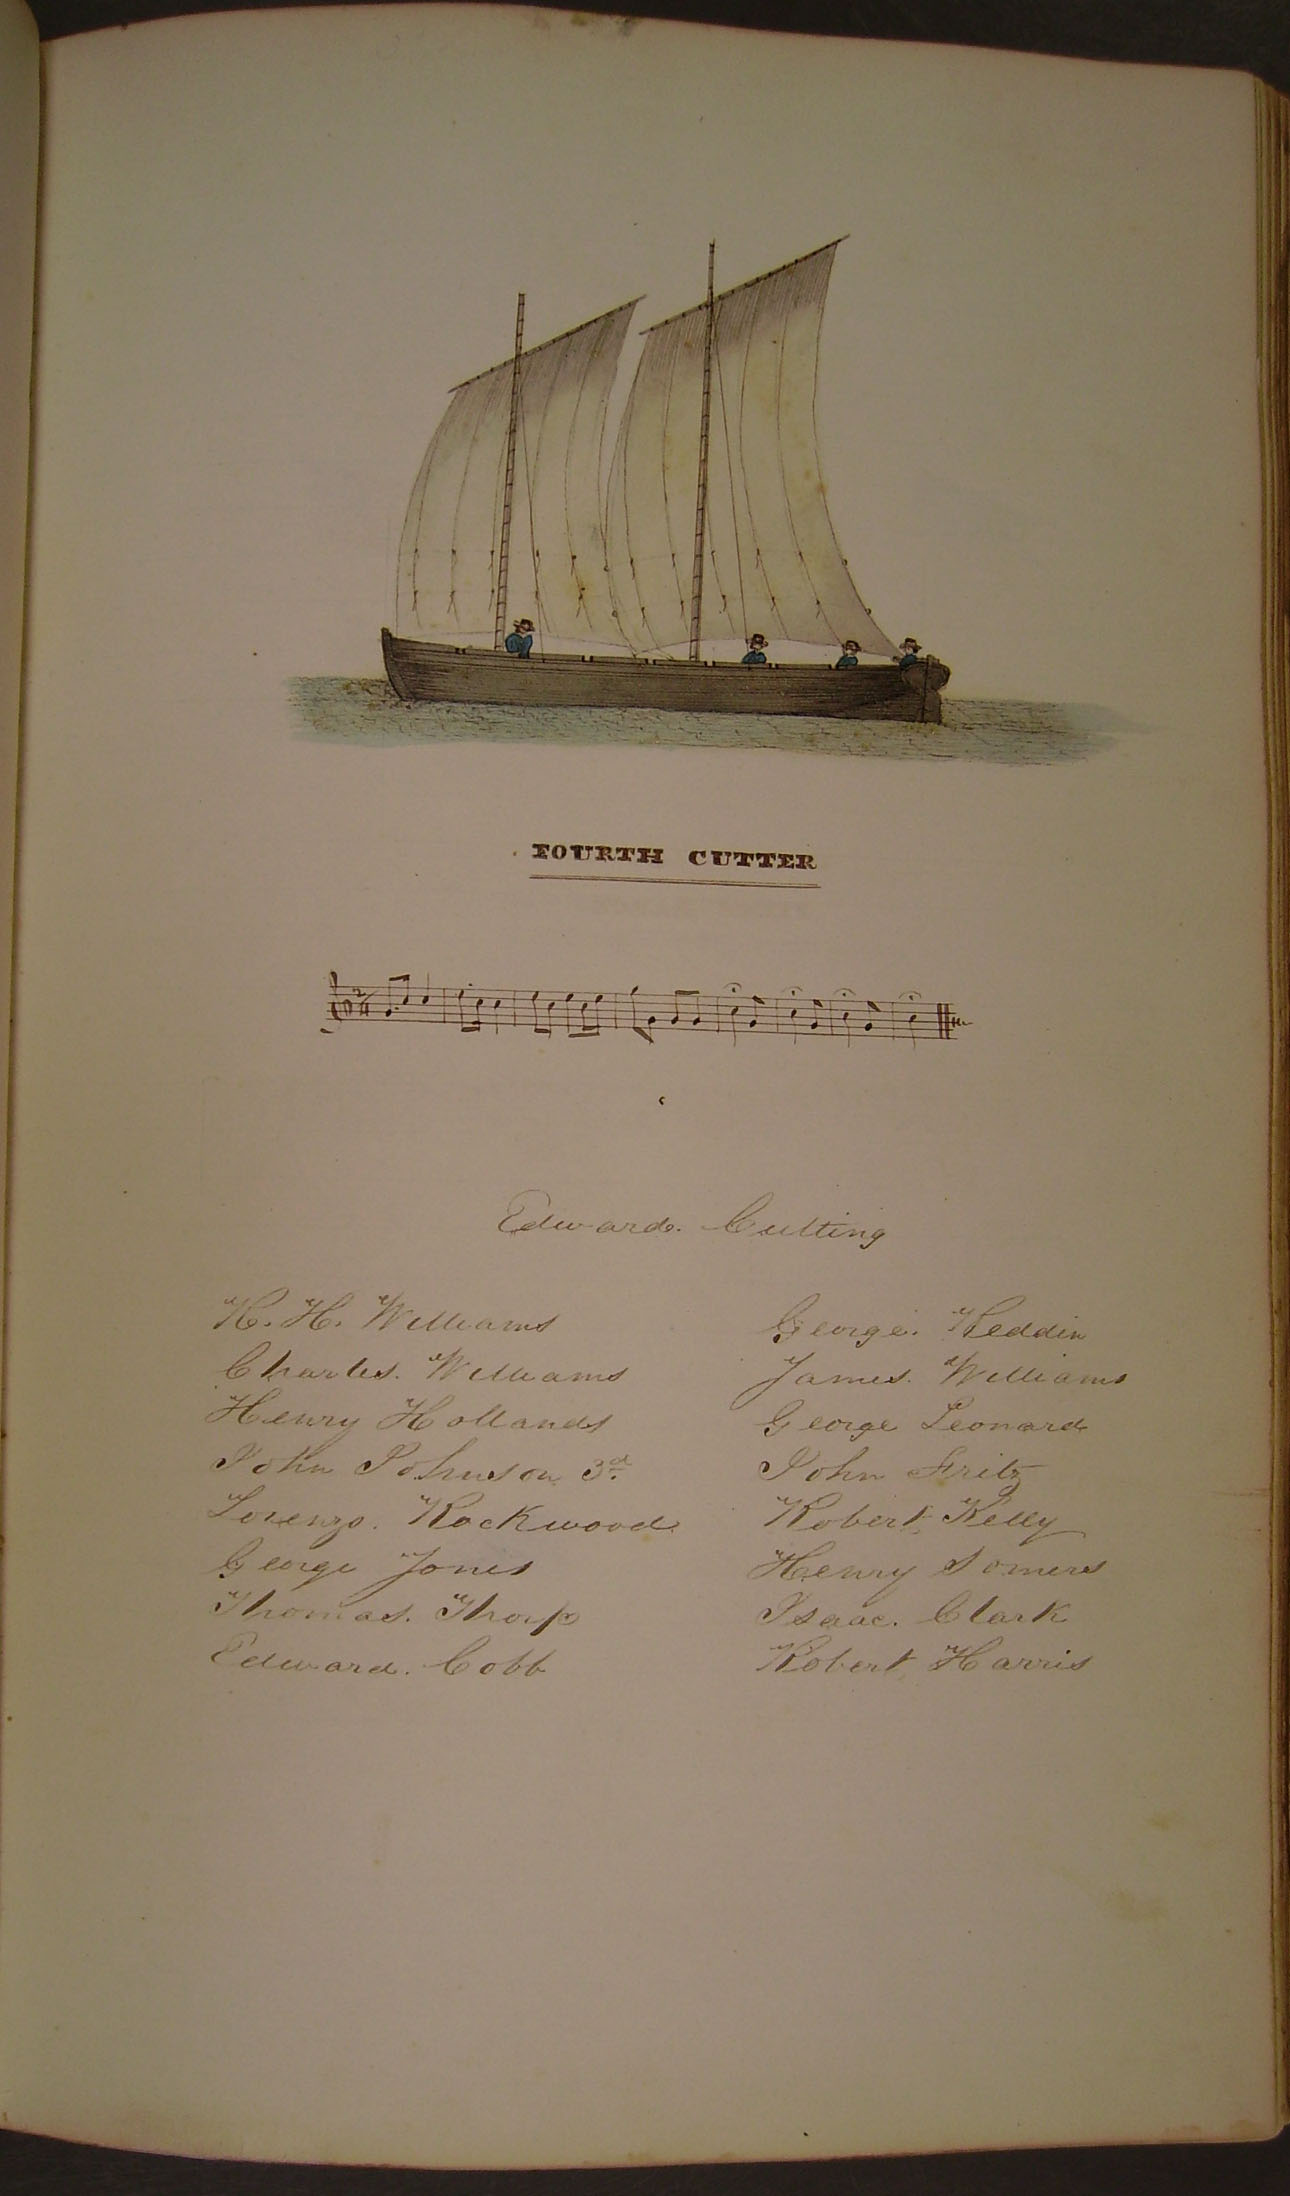 FOURTH CUTTER
2/4
Edward. Cutting
H. H. Williams
Charles. Williams
Henry Hollands
John Johnson 3d.
Lorenzo. Rockwood
George Jones
Thomas. Thorp
Edward. Cobb
George. Heddin
James. Williams
George Leonard
John Fritz
Robert Kelly
Henry Somers
Isaac. Clark
Robert Harris